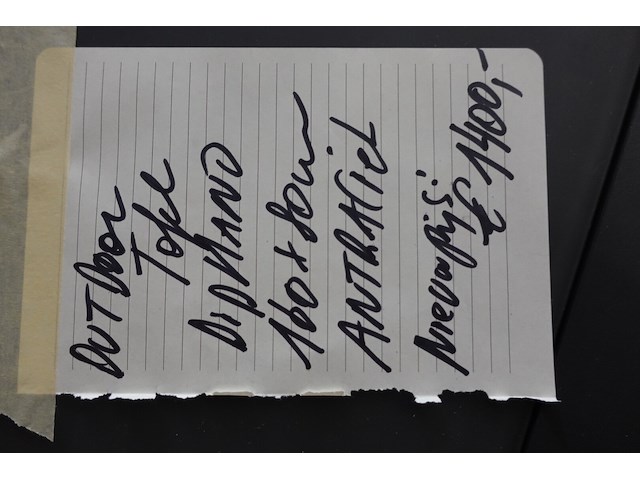 OUTDOOR
TAFEL
DIPHANO
160 x 80cm
ANTRACIET
Nieuwprijs:
€ 1400,-